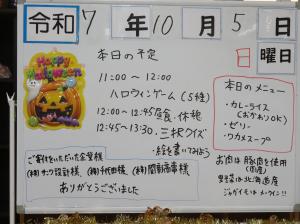 令和 7 年 10 月 5 日
日 曜日
Happy Halloween
本日の予定
11:00 〜 12:00
ハロウィンゲーム(5種)
12:00 〜 12:45 昼食、休憩
12:45〜13:30、三択クイズ
・絵を書いてみよう
ご寄付をいただいた企業様
(株)サーク設計様、(株)千代田様、(株)関商事様
ありがとうございました
本日のメニュー
・カレーライス
(おかわりOK)
・ゼリー
・ワカメスープ
お肉は豚肉を使用
(国産)
野菜は北海道産
ジャガイモはメークイン!!